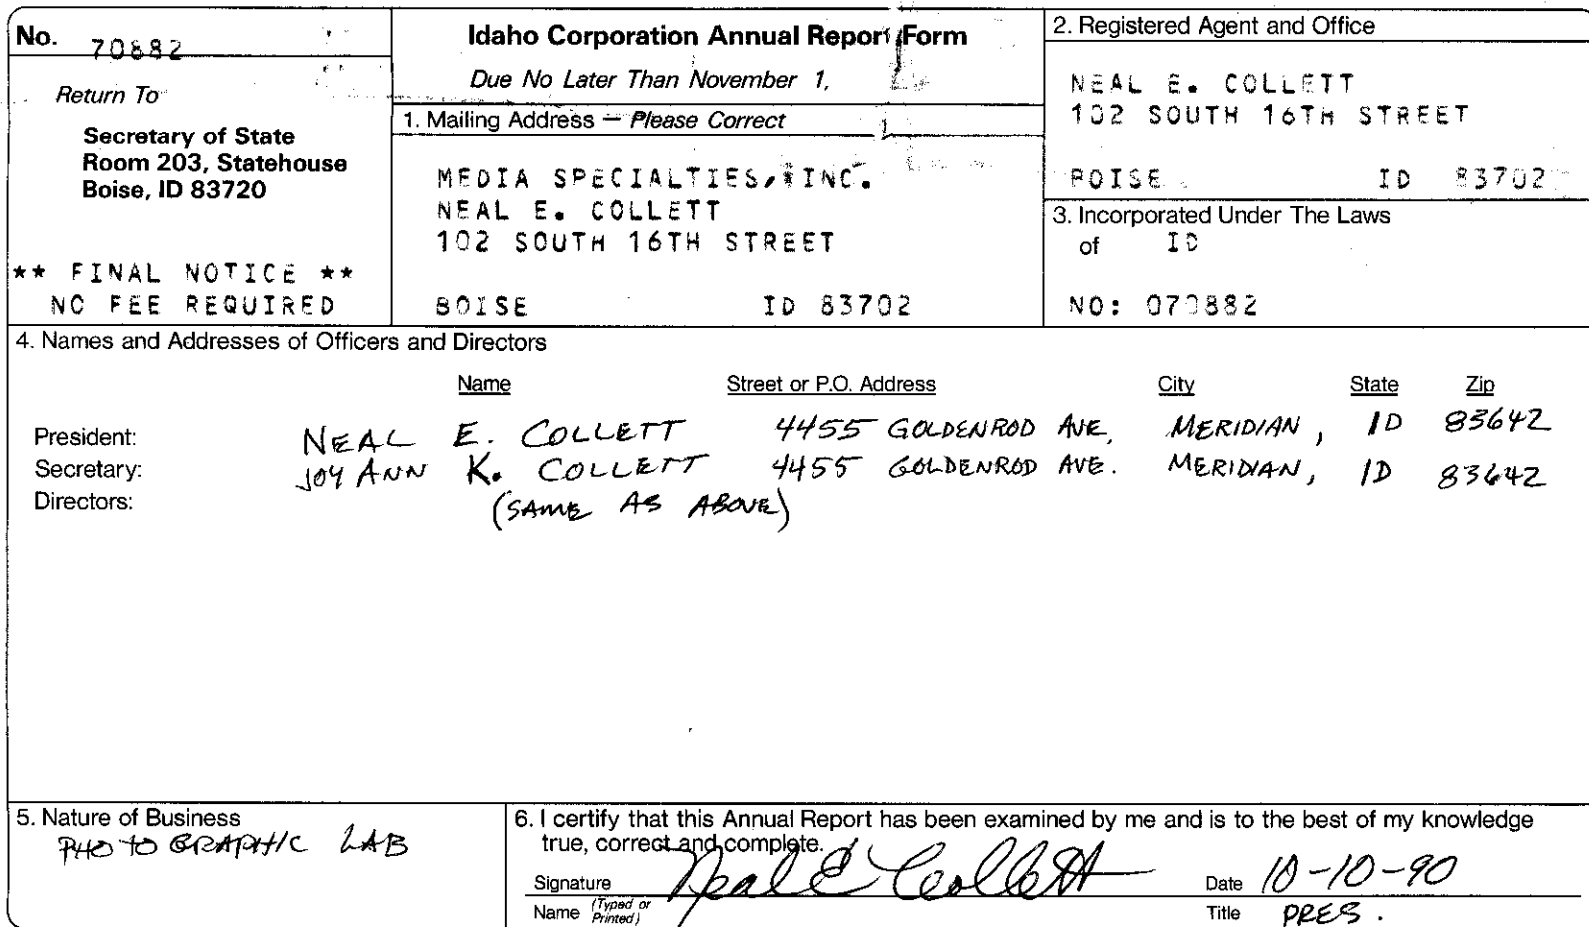 No. 70882
Return To
Secretary of State
Room 203, Statehouse
Boise, ID 83720
** FINAL NOTICE **
NO FEE REQUIRED
Idaho Corporation Annual Report Form
Due No Later Than November 1,
1. Mailing Address — Please Correct
MEDIA SPECIALTIES, INC.
NEAL E. COLLETT
102 SOUTH 16TH STREET
BOISE ID 83702
2. Registered Agent and Office
NEAL E. COLLETT
102 SOUTH 16TH STREET
BOISE ID 83702
3. Incorporated Under The Laws
of ID
NO: 070882
4. Names and Addresses of Officers and Directors
Name Street or P.O. Address City State Zip
President: NEAL E. COLLETT 4455 GOLDENROD AVE, MERIDIAN, ID 83642
Secretary: JOY ANN K. COLLETT 4455 GOLDENROD AVE. MERIDIAN, ID 83642
Directors: (SAME AS ABOVE)
5. Nature of Business
PHOTOGRAPHIC LAB
6. I certify that this Annual Report has been examined by me and is to the best of my knowledge
true, correct and complete.
Signature Neal E Collett Date 10-10-90
Name (Typed or Printed) Title PRES.